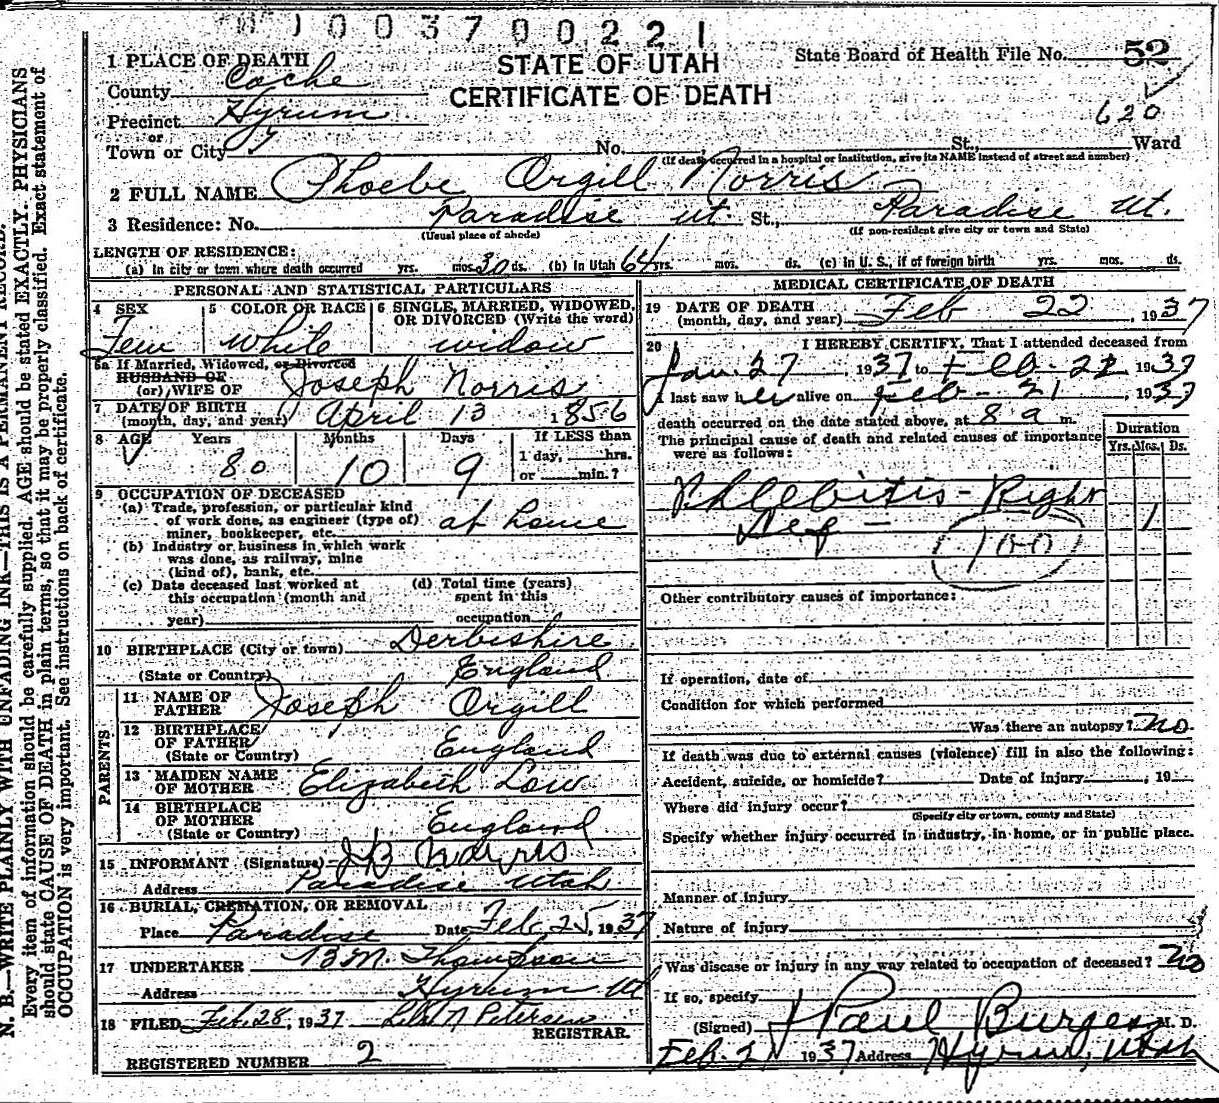 1003700221
STATE OF UTAH
CERTIFICATE OF DEATH
State Board of Health File No. 52
620
1 PLACE OF DEATH
County Cache
Precinct Hyrum
or
Town or City No. St., Ward
(If death occurred in a hospital or institution, give its NAME instead of street and number)
2 FULL NAME Phoebe Orgill Norris
3 Residence: No. Paradise Ut. St., Paradise Ut.
(Usual place of abode) (If non-resident give city or town and State)
LENGTH OF RESIDENCE:
(a) In city or town where death occurred yrs. mos. 30 ds. (b) In Utah 64 yrs. mos. ds. (c) In U. S., if of foreign birth yrs. mos. ds.
PERSONAL AND STATISTICAL PARTICULARS
4 SEX 5 COLOR OR RACE 6 SINGLE, MARRIED, WIDOWED,
OR DIVORCED (Write the word)
Fem White widow
5a If Married, Widowed, or Divorced
HUSBAND OF
(or) WIFE OF Joseph Norris
7 DATE OF BIRTH
(month, day, and year) April 13 1856
8 AGE Years Months Days If LESS than
1 day, hrs.
or min.?
80 10 9
9 OCCUPATION OF DECEASED
(a) Trade, profession, or particular kind
of work done, as engineer (type of)
miner, bookkeeper, etc. at home
(b) Industry or business in which work
was done, as railway, mine
(kind of), bank, etc.
(c) Date deceased last worked at (d) Total time (years)
this occupation (month and spent in this
year) occupation
10 BIRTHPLACE (City or town) Derbishire
(State or Country) England
PARENTS
11 NAME OF
FATHER Joseph Orgill
12 BIRTHPLACE
OF FATHER England
(State or Country)
13 MAIDEN NAME
OF MOTHER Elizabeth Low
14 BIRTHPLACE
OF MOTHER England
(State or Country)
15 INFORMANT (Signature) JB Norris
Address Paradise Utah
16 BURIAL, CREMATION, OR REMOVAL
Place Paradise Date Feb 25, 1937
17 UNDERTAKER B.M. Thompson
Address Hyrum Ut
18 FILED Feb. 28, 1937 N Petersen
REGISTRAR.
REGISTERED NUMBER 2
MEDICAL CERTIFICATE OF DEATH
19 DATE OF DEATH
(month, day, and year) Feb 22, 1937
20 I HEREBY CERTIFY, That I attended deceased from
Jan. 27 1937 to Feb. 22 1937
I last saw her alive on Feb - 21, 1937
death occurred on the date stated above, at 8 a m.
The principal cause of death and related causes of importance
were as follows:
Duration
Yrs. Mos. Ds.
Phlebitis - Right
Leg - 1
100
Other contributory causes of importance:
If operation, date of
Condition for which performed
Was there an autopsy? No.
If death was due to external causes (violence) fill in also the following:
Accident, suicide, or homicide? Date of injury , 19
Where did injury occur?
(Specify city or town, county and State)
Specify whether injury occurred in industry, in home, or in public place.
Manner of injury
Nature of injury
Was disease or injury in any way related to occupation of deceased? No
If so, specify
(Signed) Paul Burgess M. D.
Feb. 1937 Address Hyrum, Utah
N. B.—WRITE PLAINLY WITH UNFADING INK—THIS IS A PERMANENT RECORD.
Every item of information should be carefully supplied. AGE should be stated EXACTLY. PHYSICIANS
should state CAUSE OF DEATH in plain terms, so that it may be properly classified. Exact statement of
OCCUPATION is very important. See instructions on back of certificate.